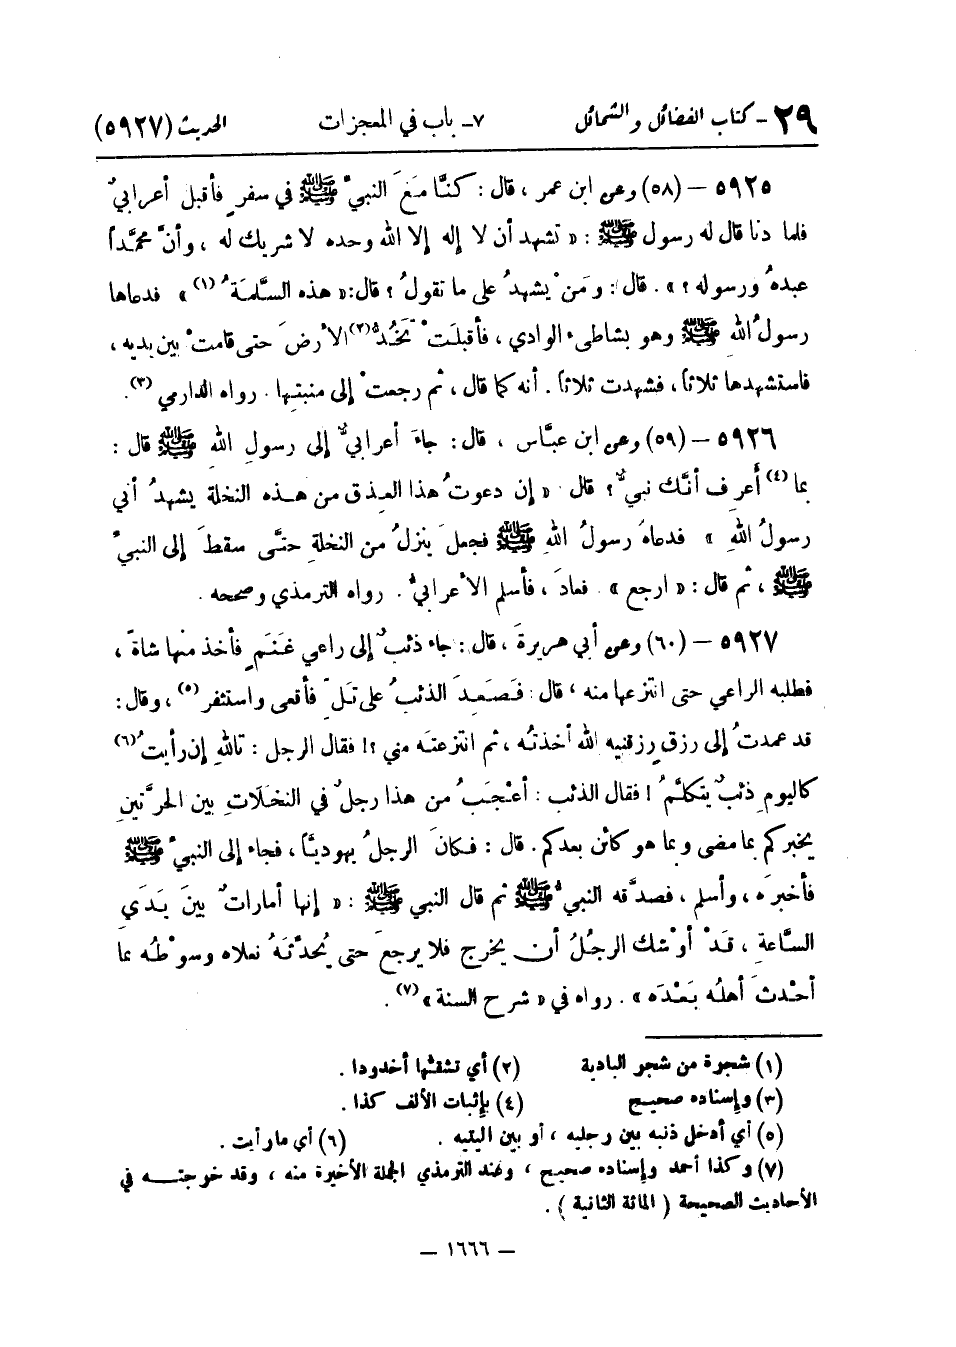 ٢٩ - كتاب الفضائل والشمائل ٧- باب في المعجزات الحديث (٥٩٢٧)
٥٩٢٥ – (٥٨) وعن ابن عمر ، قال : كنَّا مَعَ النبيِّ ﷺ في سفرٍ فأقبل أعرابيٌّ
فلما دنا قال له رسول ﷺ : « تشهد أن لا إله إلا الله وحده لا شريك له ، وأنَّ محمَّداً
عبدهُ ورسوله ؟ » . قال : ومَنْ يشهدُ على ما تقولُ ؟ قال : « هذه السَّلَمَةُ (١) » فدعاها
رسولُ اللهِ ﷺ وهو بشاطىء الوادي ، فأقبلَتْ تَخُدُّ (٢) الأرضَ حتى قامتْ بين يديه ،
فاستشهدها ثلاثاً ، فشهدت ثلاثاً . أنه كما قال ، ثم رجعتْ إلى منبتِها . رواه الدارمي (٣) .
٥٩٢٦ – (٥٩) وعن ابن عبَّاس ، قال : جاءَ أعرابيٌّ إلى رسولِ اللهِ ﷺ قال :
بما (٤) أَعرِف أنَّك نبيٌّ ؟ قال « إن دعوتُ هذا العِذق من هذه النخلة يشهدُ أني
رسولُ اللهِ » فدعاه رسولُ اللهِ ﷺ فجعلَ ينزلُ من النخلةِ حتَّى سقطَ إلى النبيِّ
ﷺ ، ثم قال : « ارجع » . فعادَ ، فأسلم الأعرابيُّ . رواه الترمذي وصححه .
٥٩٢٧ – (٦٠) وعن أبي هريرةَ ، قال : جاء ذئبٌ إلى راعي غَنَمٍ فأخذ منها شاةً ،
فطلبه الراعي حتى انتزعها منه ، قال : فَصَعِدَ الذئبُ على تلٍّ فأقعى واستثفر (٥) ، وقال :
قد عمدتُ إلى رزقٍ رزقنيه الله أخذتُه ، ثم انتزعتَه مني ؟! فقال الرجل : تاللهِ إن رأيتُ (٦)
كاليومِ ذئبٌ يتكلَّمُ ! فقال الذئب : أعْجَبُ من هذا رجلٌ في النخلَاتِ بين الحرَّتينِ
يخبركم بما مضى وبما هو كائن بعدكم . قال : فكانَ الرجلُ يهوديَّاً ، فجاء إلى النبيِّ ﷺ
فأخبرَه ، وأسلم ، فصدَّقه النبيُّ ﷺ ثم قال النبي ﷺ : « إنها أماراتٌ بينَ يَدَي
السَّاعةِ ، قَدْ أوْشك الرجُلُ أن يخرج فلا يرجعَ حتى يُحدِّثَهُ نعلاه وسوْطُه بما
أحْدثَ أهلُه بَعْدَه » . رواه في « شرح السنة » (٧) .
(١) شجرة من شجر البادية (٢) أي تشقُّها أخدودا .
(٣) وإسناده صحيح (٤) بإثبات الألف كذا .
(٥) أي أدخل ذنبه بين رجليه ، أو بين اليتيه . (٦) أي ما رأيت .
(٧) وكذا أحمد وإسناده صحيح ، وعند الترمذي الجملة الأخيرة منه ، وقد خرجتـه في
الأحاديث الصحيحة ( المائة الثانية ) .
– ١٦٦٦ –